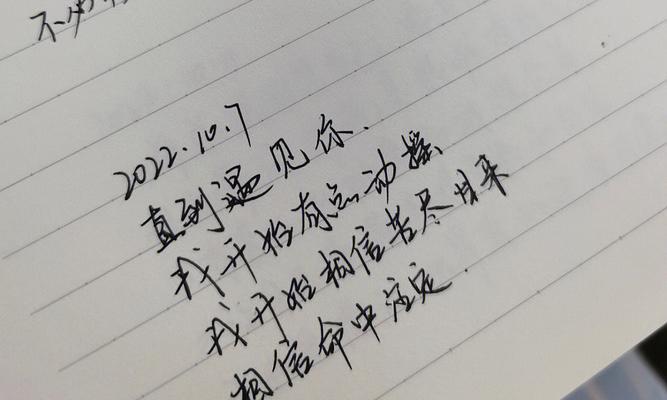 不必
2022.10.7
直到遇见你.
我开始有点动摇
我开始相信苦尽甘来
相信命中注定.